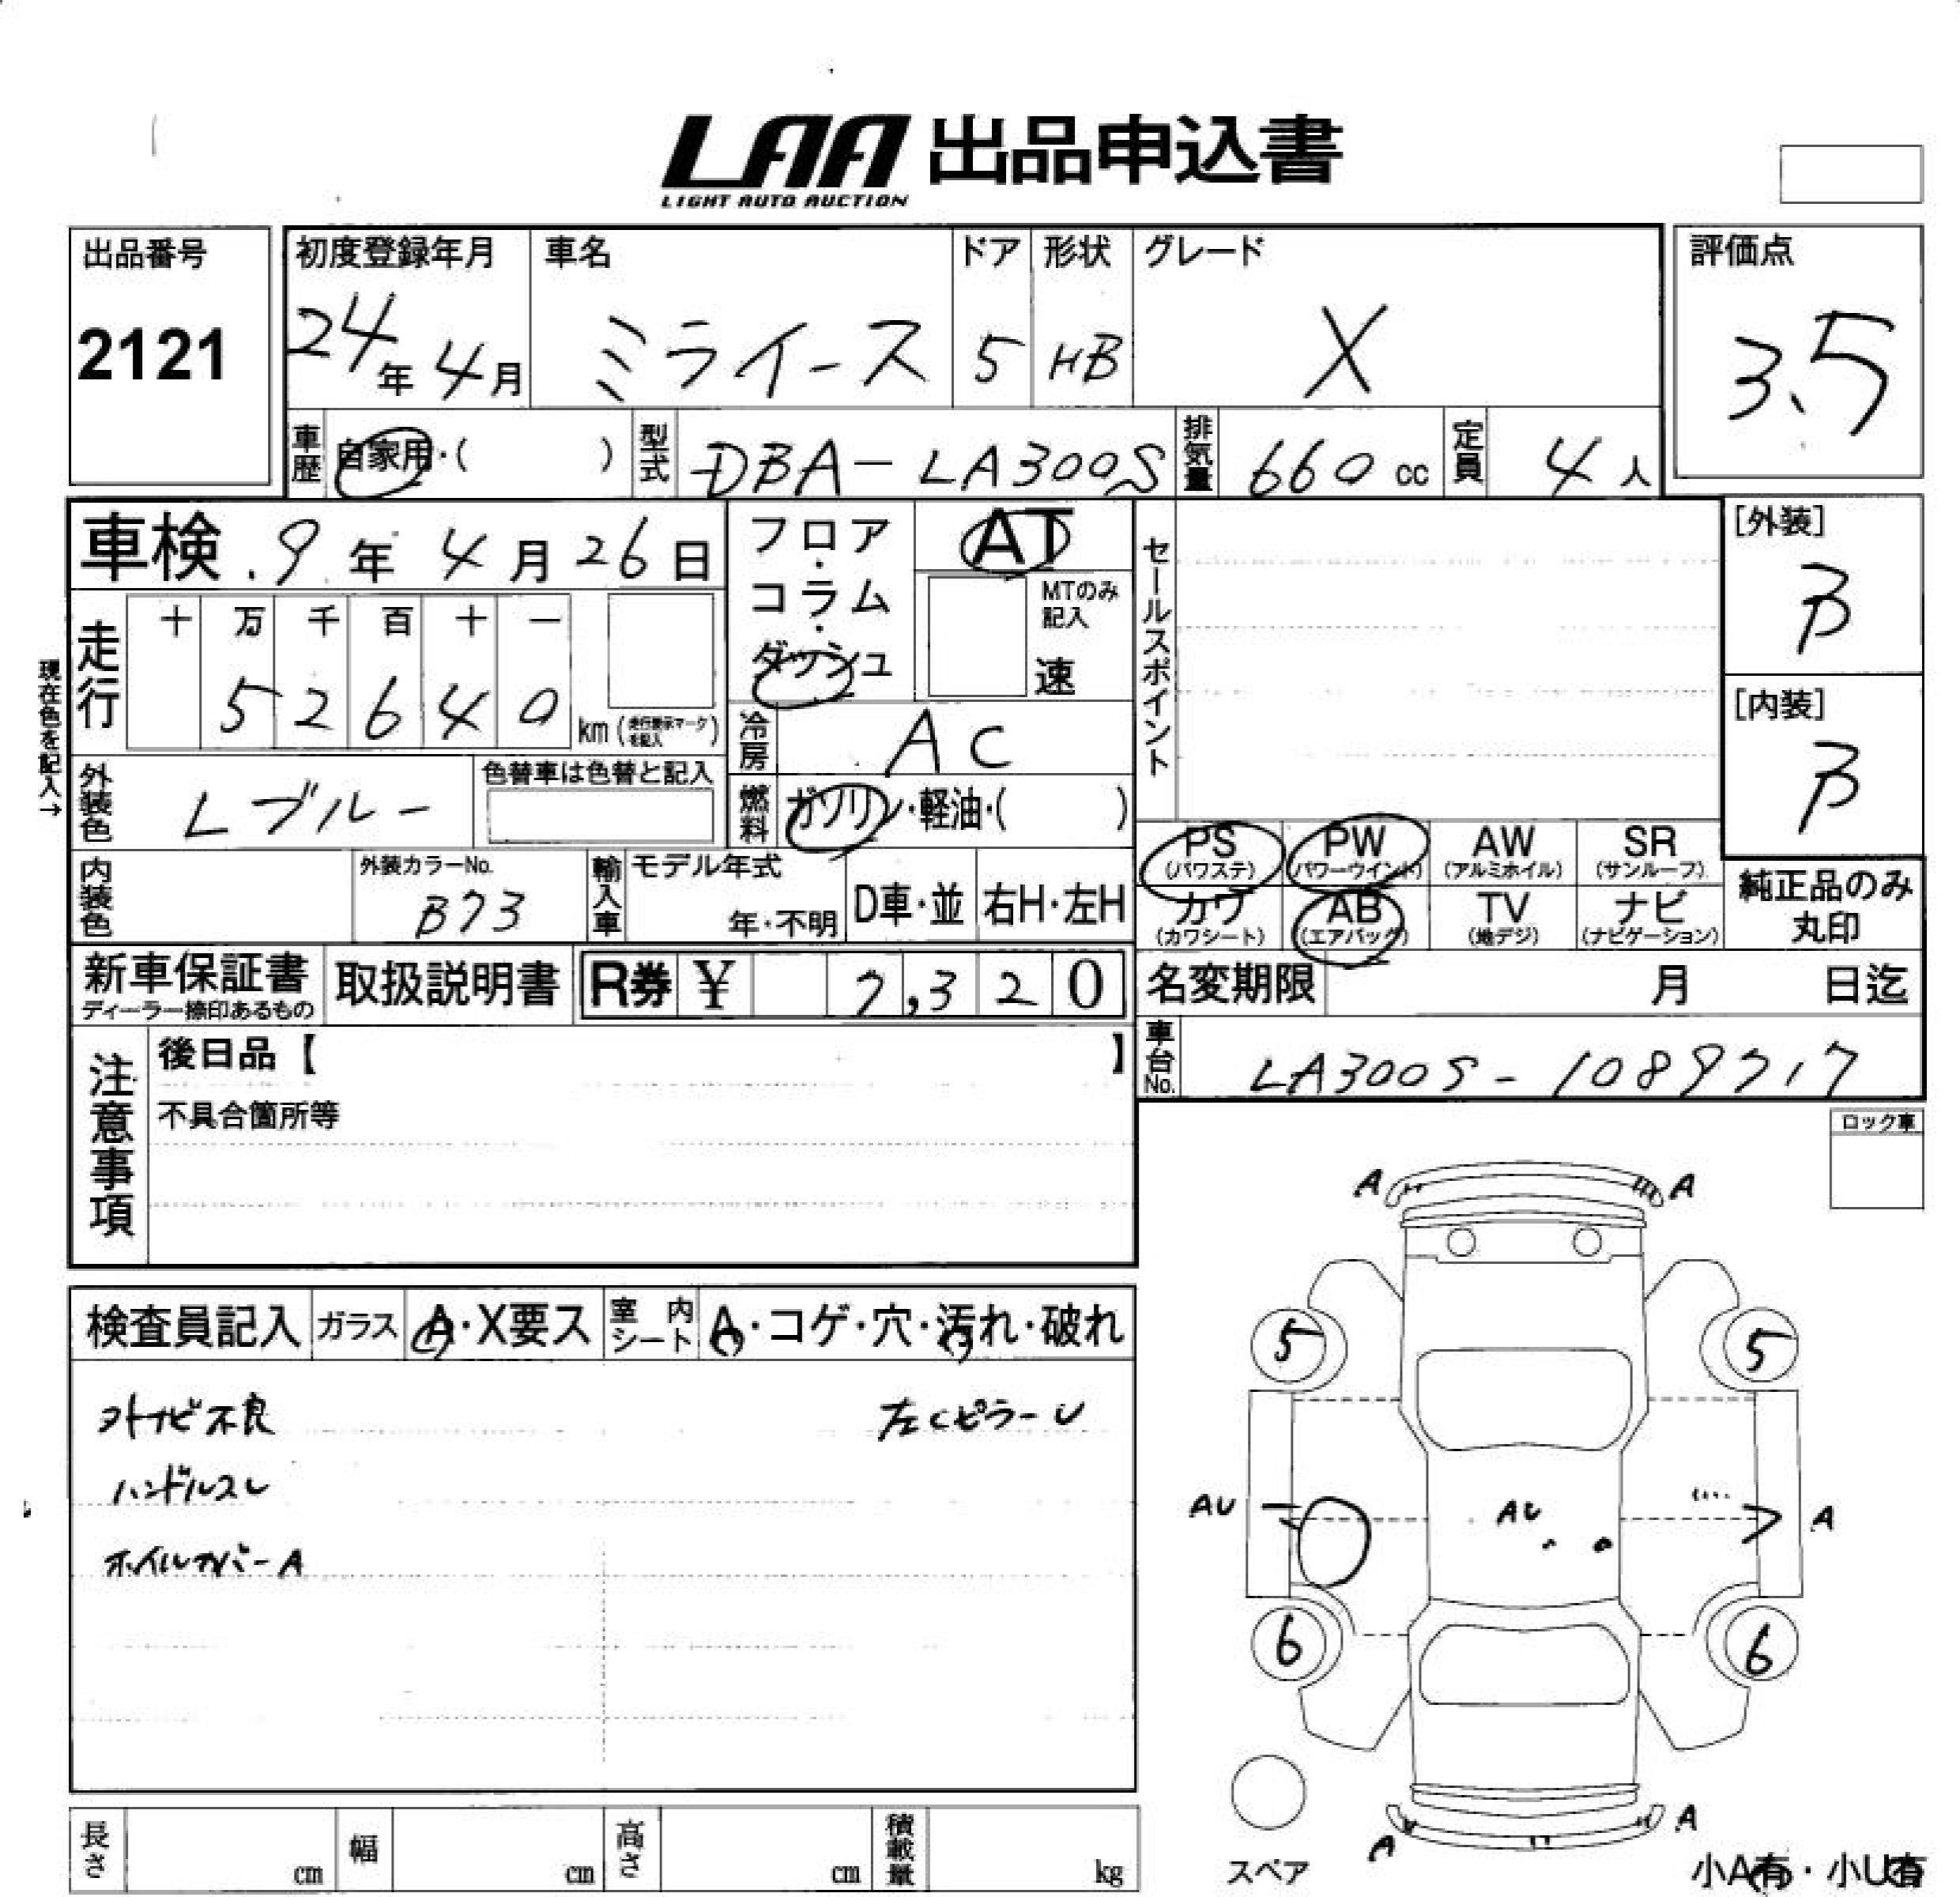 LAA 出品申込書
LIGHT AUTO AUCTION
出品番号
2121
初度登録年月
24年4月
車名
ミライース
ドア
5
形状
HB
グレード
X
評価点
3.5
車歴
自家用・( )
型式
DBA-LA300S
排気量
660 cc
定員
4人
車検 9年4月26日
フロア・コラム・ダッシュ
AT
MTのみ記入
速
セールスポイント
[外装]
B
[内装]
B
現在色を記入→
走行
十 万 千 百 十 一
5 2 6 4 0
km (走行表示マークを記入)
冷房
AC
外装色
Lブルー
色替車は色替と記入
燃料
ガソリン・軽油・( )
PS (パワステ)
PW (パワーウインド)
AW (アルミホイル)
SR (サンルーフ)
カワ (カワシート)
AB (エアバック)
TV (地デジ)
ナビ (ナビゲーション)
純正品のみ
丸印
内装色
外装カラーNo.
B73
輸入車
モデル年式
年・不明
D車・並
右H・左H
新車保証書
ディーラー捺印あるもの
取扱説明書
R券 ¥ 7,320
名変期限 月 日迄
車台No.
LA300S-1089717
注意事項
後日品【 】
不具合箇所等
ロック車
検査員記入
ガラス
A・X要ス
室内シート
A・コゲ・穴・汚れ・破れ
不良
左CピラーU
ハンドルスレ
ホイルカバーA
A A
5 5
AU AU A
6 6
A A
スペア
小A有・小U有
長さ cm
幅 cm
高さ cm
積載量 kg